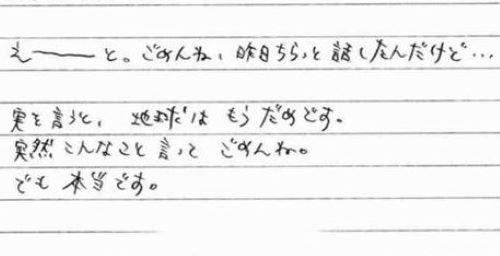 えーーと。ごめんね、昨日ちらっと話したんだけど…
実を言うと、地球はもうだめです。
突然こんなこと言ってごめんね。
でも本当です。